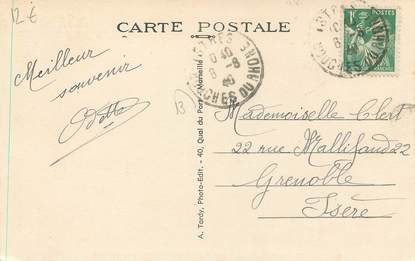 12 €
CARTE POSTALE
ISTRES
8 -8
40
BOUCHES DU RHONE
Meilleur
souvenir
Odette
13
A. Tardy, Photo-Edit. - 40, Quai du Port - Marseille
Mademoiselle Clert
22 rue Mallifaud 22
Grenoble
Isère